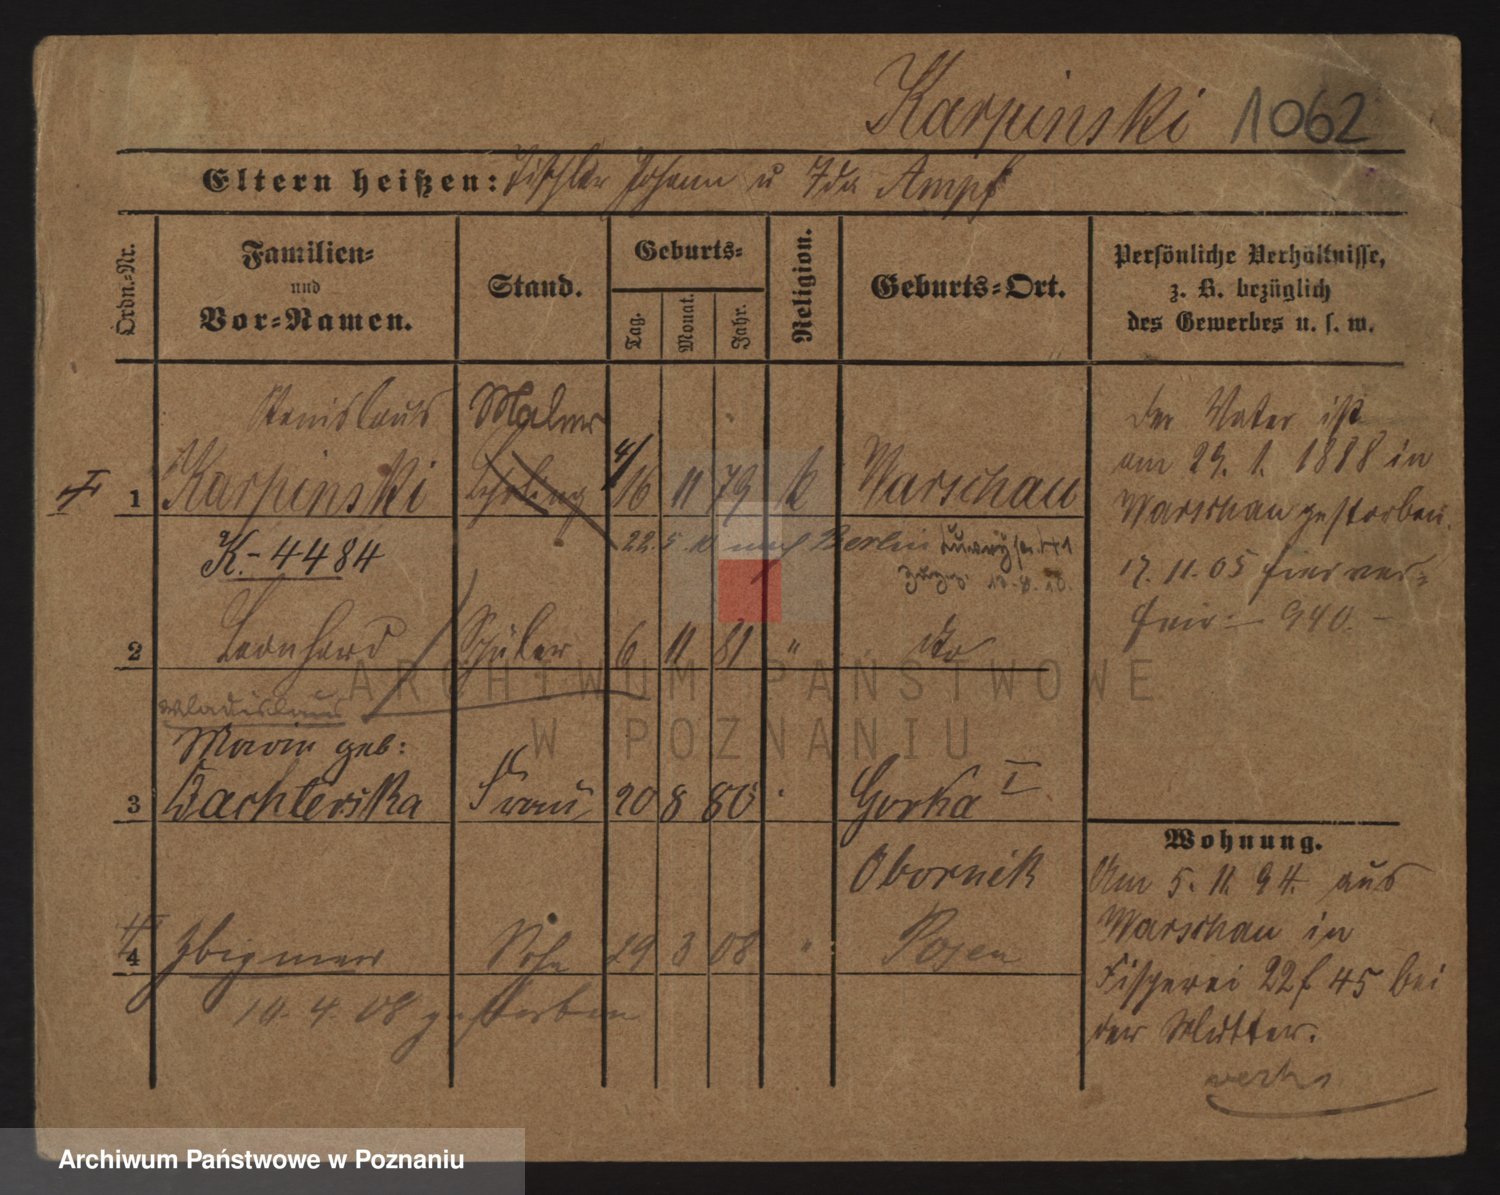 Karpinski 1062
Eltern heißen: Tischler Johann u Ida Ampf
Ordn.-Nr.
Familien- und Vor-Namen.
Stand.
Geburts-
Tag.
Monat.
Jahr.
Religion.
Geburts-Ort.
Persönliche Verhältnisse,
z. B. bezüglich
des Gewerbes u. s. w.
Stanislaus Maler
1 Karpinski 16 11 79 k Warschau
K.-4484
22. 5. nach Berlin
10.8.10.
2 Leonhard Schüler 6 11 81 " do
Wladislaus
Marie geb:
3 Bachlerska Frau 20 8 80 Gorka I
Obornik
4 Zbigniew Sohn 29 3 08 " Posen
10. 4. 08 gestorben
Der Vater ist
am 29. 1. 1888 in
Warschau gestorben.
17. 11. 05 hier ver-
940.-
Wohnung.
Am 5. 11. 94. aus
Warschau in
Fischerei 22 45 bei
der Mutter.
ARCHIWUM PAŃSTWOWE
W POZNANIU
Archiwum Państwowe w Poznaniu